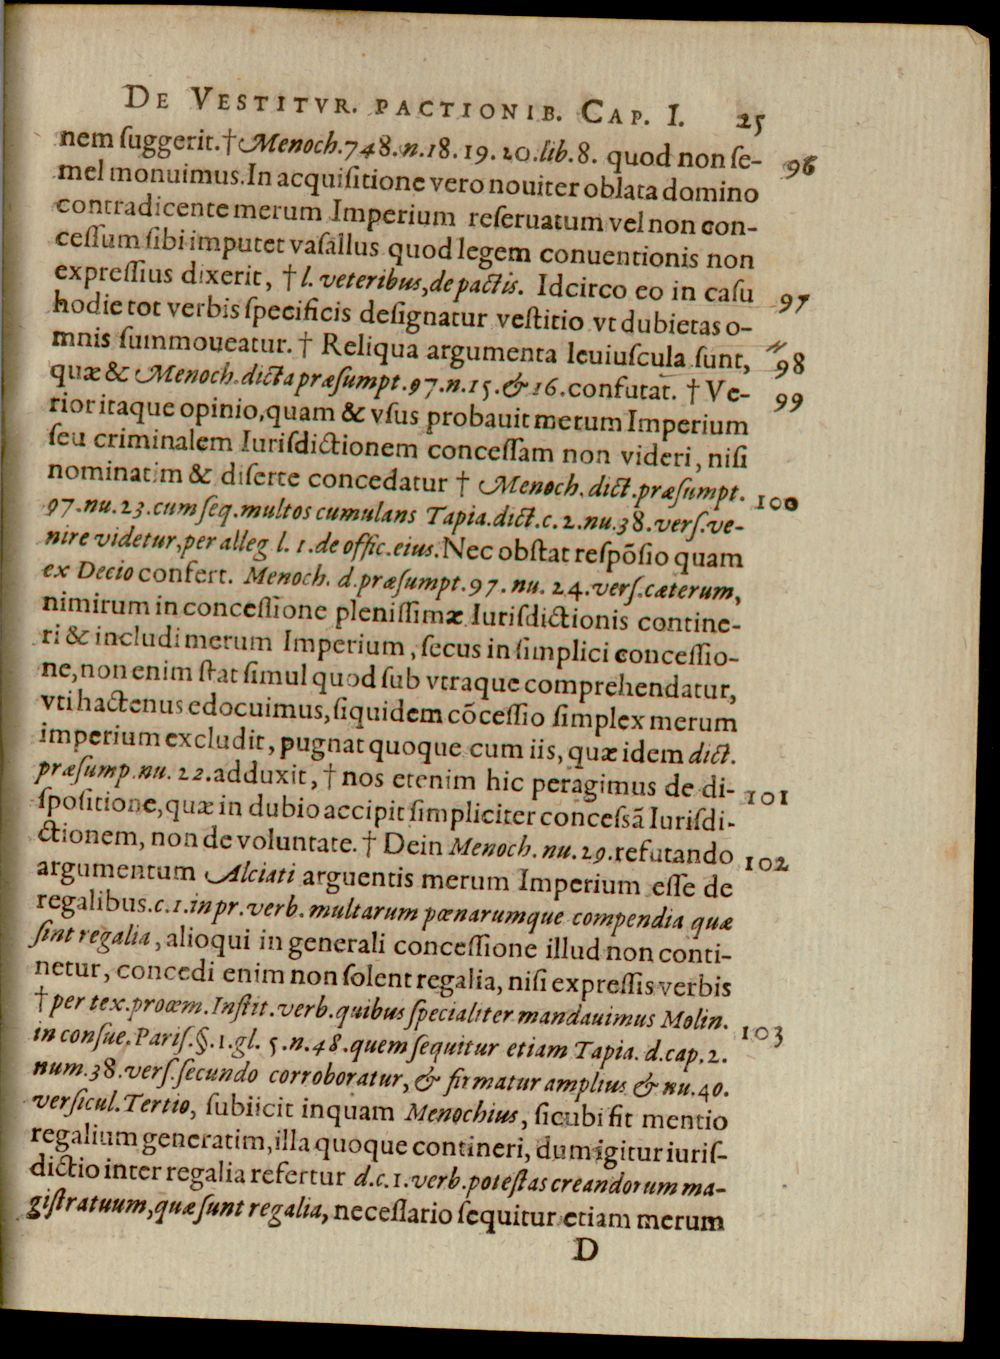 DE VESTITVR. PACTIONIB. CAP. I. 25
nem ſuggerit. † Menoch. 748. n. 18. 19. 20. lib. 8. quod non ſe- 96
mel monuimus. In acquiſitione vero nouiter oblata domino
contradicente merum Imperium reſeruatum vel non con-
ceſſum ſibi imputet vaſallus quod legem conuentionis non
expreſſius dixerit, † l. veteribus, de pactis. Idcirco eo in caſu 97
hodie tot verbis ſpecificis deſignatur veſtitio vt dubietas o-
mnis ſummoueatur. † Reliqua argumenta leuiuſcula ſunt, 98
quæ & Menoch. dicta præſumpt. 97. n. 15. & 16. confutat. † Ve- 99
rior itaque opinio, quam & vſus probauit merum Imperium
ſeu criminalem Iuriſdictionem conceſſam non videri, niſi
nominatim & diſerte concedatur † Menoch. dict. præſumpt. 100
97. nu. 23. cum ſeq. multos cumulans Tapia. dict. c. 2. nu. 38. verſ. ve-
nire videtur, per alleg l. 1. de offic. eius. Nec obſtat reſpõſio quam
ex Decio confert. Menoch. d. præſumpt. 97. nu. 24. verſ. cæterum,
nimirum in conceſſione pleniſſimæ Iuriſdictionis contine-
ri & includi merum Imperium, ſecus in ſimplici conceſſio-
ne, non enim ſtat ſimul quod ſub vtraque comprehendatur,
vti hactenus edocuimus, ſiquidem cõceſſio ſimplex merum
imperium excludit, pugnat quoque cum iis, quæ idem dict.
præſump. nu. 22. adduxit, † nos etenim hic peragimus de di- 101
ſpoſitione, quæ in dubio accipit ſimpliciter conceſsã Iuriſdi-
ctionem, non de voluntate. † Dein Menoch. nu. 29. refutando 102
argumentum Alciati arguentis merum Imperium eſſe de
regalibus. c. 1. in pr. verb. multarum pœnarumque compendia quæ
ſint regalia, alioqui in generali conceſſione illud non conti-
netur, concedi enim non ſolent regalia, niſi expreſſis verbis
† per tex. proœm. Inſtit. verb. quibus ſpecialiter mandauimus Molin. 103
in conſue. Pariſ. §. 1. gl. 5. n. 48. quem ſequitur etiam Tapia. d. cap. 2.
num. 38. verſ. ſecundo corroboratur, & firmatur amplius & nu. 40.
verſicul. Tertio, ſubiicit inquam Menochius, ſicubi fit mentio
regalium generatim, illa quoque contineri, dum igitur iuriſ-
dictio inter regalia refertur d. c. 1. verb. poteſtas creandorum ma-
giſtratuum, quæ ſunt regalia, neceſſario ſequitur etiam merum
D